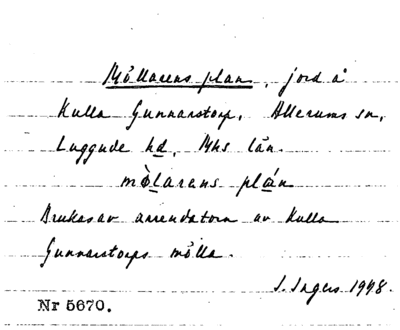 Möllarens plan, jord å
Kulla Gunnarstorp, Allerums sn,
Luggude hd, Mhs län.
mò̀larens plán
Brukas av arrendatorn av Kulla
Gunnarstorps mölla.
I. Ingers 1948.
Nr 5670.